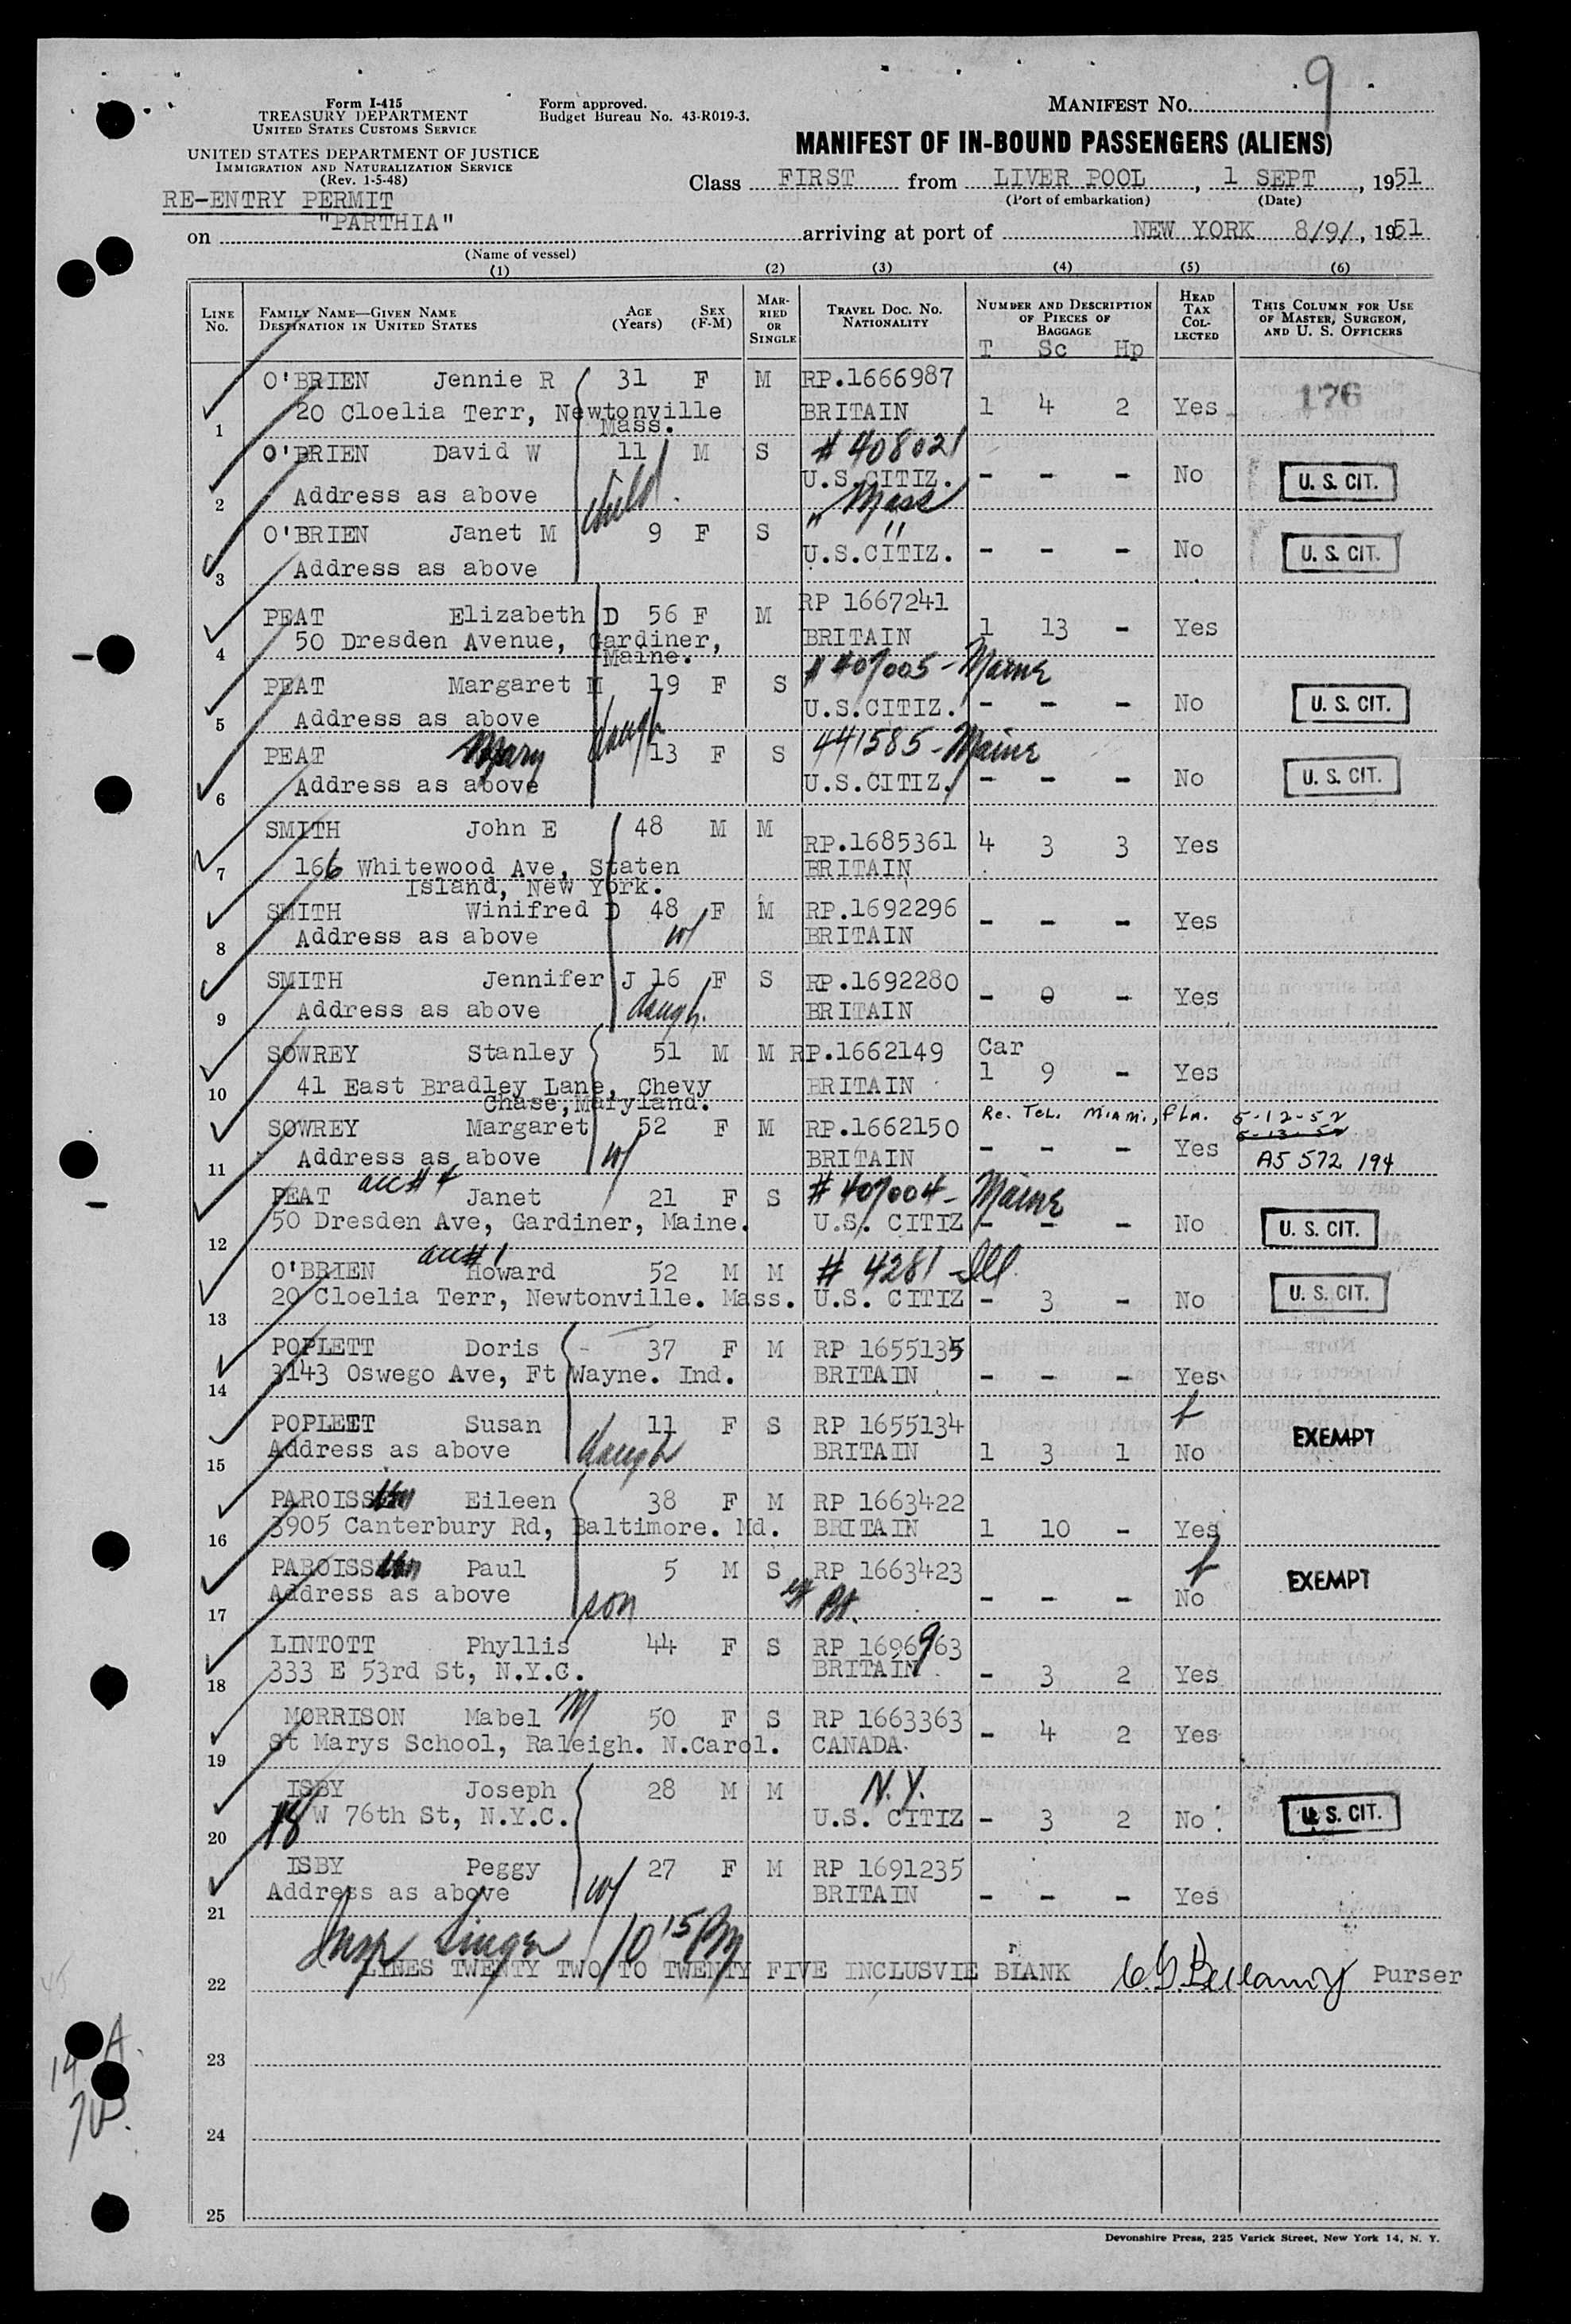 9
Form I-415
TREASURY DEPARTMENT
UNITED STATES CUSTOMS SERVICE
UNITED STATES DEPARTMENT OF JUSTICE
IMMIGRATION AND NATURALIZATION SERVICE
(Rev. 1-5-48)
RE-ENTRY PERMIT
Form approved.
Budget Bureau No. 43-R019-3.
MANIFEST NO.
MANIFEST OF IN-BOUND PASSENGERS (ALIENS)
Class FIRST from LIVER POOL, 1 SEPT, 1951
(Port of embarkation) (Date)
on "PARTHIA" arriving at port of NEW YORK 8/9/, 1951
(Name of vessel)
(1) (2) (3) (4) (5) (6)
LINE No. FAMILY NAME—GIVEN NAME DESTINATION IN UNITED STATES AGE (Years) SEX (F-M) MARRIED OR SINGLE TRAVEL DOC. NO. NATIONALITY NUMBER AND DESCRIPTION OF PIECES OF BAGGAGE HEAD TAX COLLECTED THIS COLUMN FOR USE OF MASTER, SURGEON, AND U. S. OFFICERS
T Sc Hp
O'BRIEN Jennie R 31 F M RP.1666987 176
1 20 Cloelia Terr, Newtonville Mass. BRITAIN 1 4 2 Yes
O'BRIEN David W 11 M S # 408021
2 Address as above child. U.S.CITIZ. - - - No U. S. CIT.
" Mass
O'BRIEN Janet M 9 F S "
3 Address as above U.S.CITIZ. - - - No U. S. CIT.
PEAT Elizabeth D 56 F M RP 1667241
4 50 Dresden Avenue, Gardiner, Maine. BRITAIN 1 13 - Yes
PEAT Margaret M 19 F S # 407005 - Maine
5 Address as above daugh U.S.CITIZ. - - - No U. S. CIT.
PEAT Mary 13 F S 441585 - Maine
6 Address as above U.S.CITIZ. - - - No U. S. CIT.
SMITH John E 48 M M RP.1685361 4 3 3 Yes
7 166 Whitewood Ave, Staten Island, New York. BRITAIN
SMITH Winifred D 48 F M RP.1692296
8 Address as above w/ BRITAIN - - - Yes
SMITH Jennifer J 16 F S RP.1692280
9 Address as above daugh. BRITAIN - 0 - Yes
SOWREY Stanley 51 M M RP.1662149 Car
10 41 East Bradley Lane, Chevy Chase,Maryland. BRITAIN 1 9 - Yes
Re. Tel. Miami, Fla. 5-12-52
5-13-52
SOWREY Margaret 52 F M RP.1662150
11 Address as above w/ BRITAIN - - - Yes A5 572 194
acc # 4
PEAT Janet 21 F S # 407004 - Maine
12 50 Dresden Ave, Gardiner, Maine. U.S. CITIZ - - - No U. S. CIT.
acc # 1
O'BRIEN Howard 52 M M # 4281 - Ill
13 20 Cloelia Terr, Newtonville. Mass. U.S. CITIZ - 3 - No U. S. CIT.
POPLETT Doris 37 F M RP 1655135
14 3143 Oswego Ave, Ft Wayne. Ind. BRITAIN - - - Yes
POPLETT Susan 11 F S RP 1655134 EXEMPT
15 Address as above daugh BRITAIN 1 3 1 No
PAROISSien Eileen 38 F M RP 1663422
16 3905 Canterbury Rd, Baltimore. Md. BRITAIN 1 10 - Yes
PAROISSien Paul 5 M S RP 1663423 EXEMPT
17 Address as above son Br. - - - No
LINTOTT Phyllis 44 F S RP 1696963
18 333 E 53rd St, N.Y.C. BRITAIN - 3 2 Yes
MORRISON Mabel M 50 F S RP 1663363
19 St Marys School, Raleigh. N.Carol. CANADA - 4 2 Yes
ISBY Joseph 28 M M N.Y.
20 18 W 76th St, N.Y.C. U.S. CITIZ - 3 2 No U. S. CIT.
ISBY Peggy 27 F M RP 1691235
21 Address as above w/ BRITAIN - - - Yes
Insp Singer 10 15 Pm
22 LINES TWENTY TWO TO TWENTY FIVE INCLUSVIE BLANK C.G.Bellamy Purser
23
14 A.
24
25
Devonshire Press, 225 Varick Street, New York 14, N. Y.